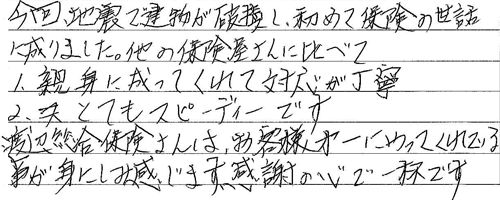 今回、地震で建物が破損し、初めて保険の世話
に成りました。他の保険屋さんに比べて
1. 親身に成ってくれて対応が丁寧
2. 又とてもスピーディーです
渡辺総合保険さんは、お客様オ一にやってくれている
事が身にしみ感じます。感謝の心で一杯です